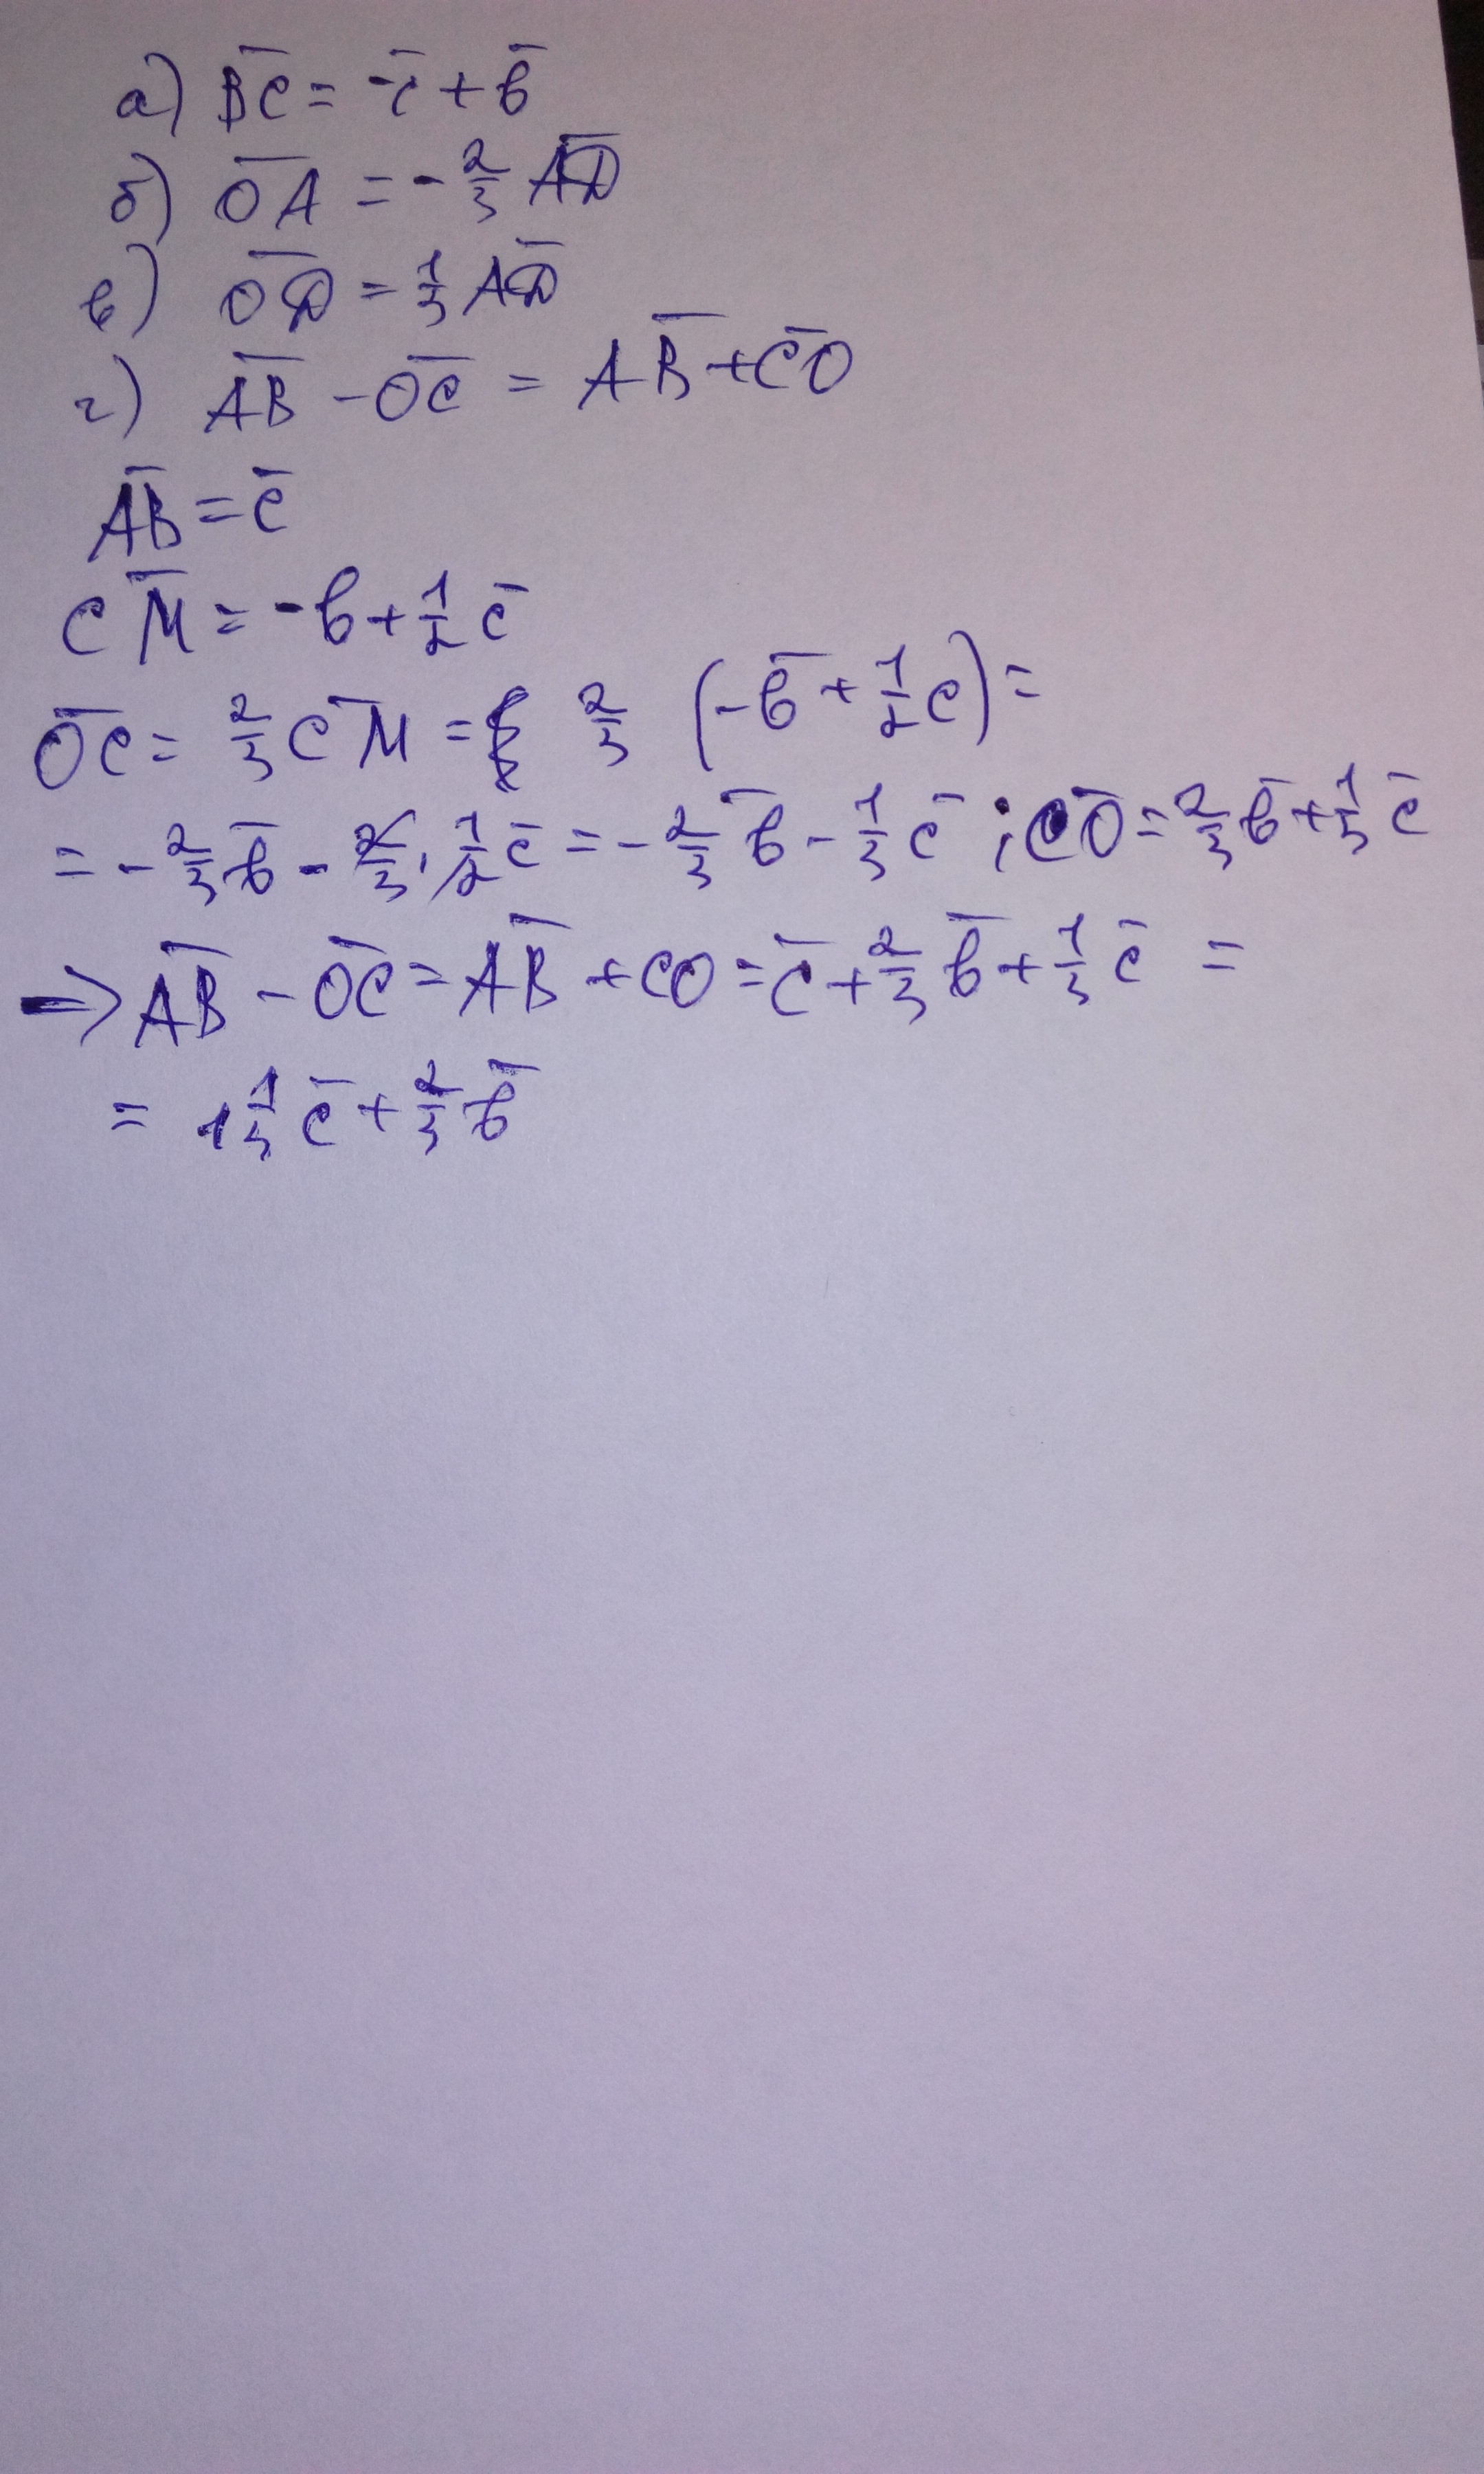 а) B̅C̅ = -c̅ + b̅
б) O̅A̅ = -2/3 A̅D̅
в) O̅D̅ = 1/3 A̅D̅
г) A̅B̅ - O̅C̅ = A̅B̅ + C̅O̅
A̅B̅ = c̅
C̅M̅ = -b + 1/2 c̅
O̅C̅ = 2/3 C̅M̅ = 2/3 (-b̅ + 1/2 c) =
= -2/3 b̅ - 2/3 · 1/2 c̅ = -2/3 b̅ - 1/3 c̅ ; C̅O̅ = 2/3 b̅ + 1/3 c̅
=> A̅B̅ - O̅C̅ = A̅B̅ + CO = c̅ + 2/3 b̅ + 1/3 c̅ =
= 1 1/3 c̅ + 2/3 b̅